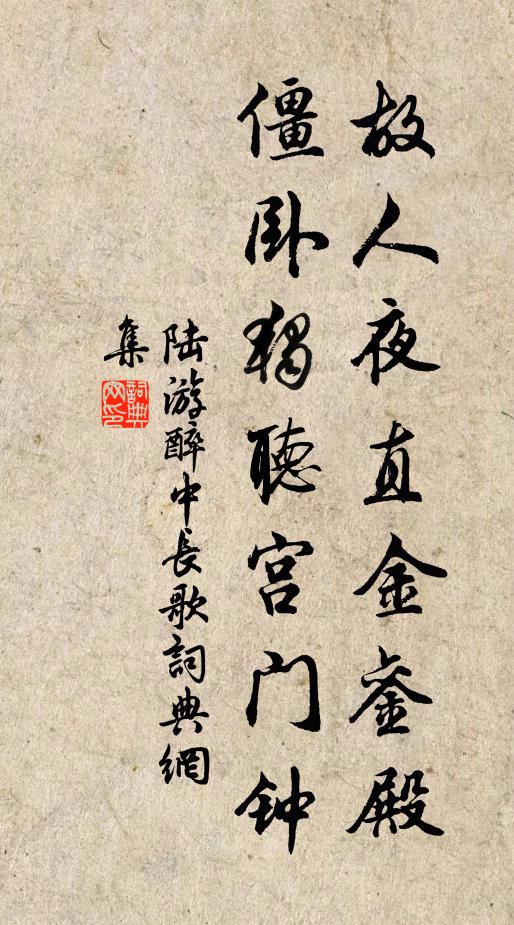 故人夜直金銮殿
僵卧独聽宫门钟
陆游醉中長歌詞典網
集
詞典
网印